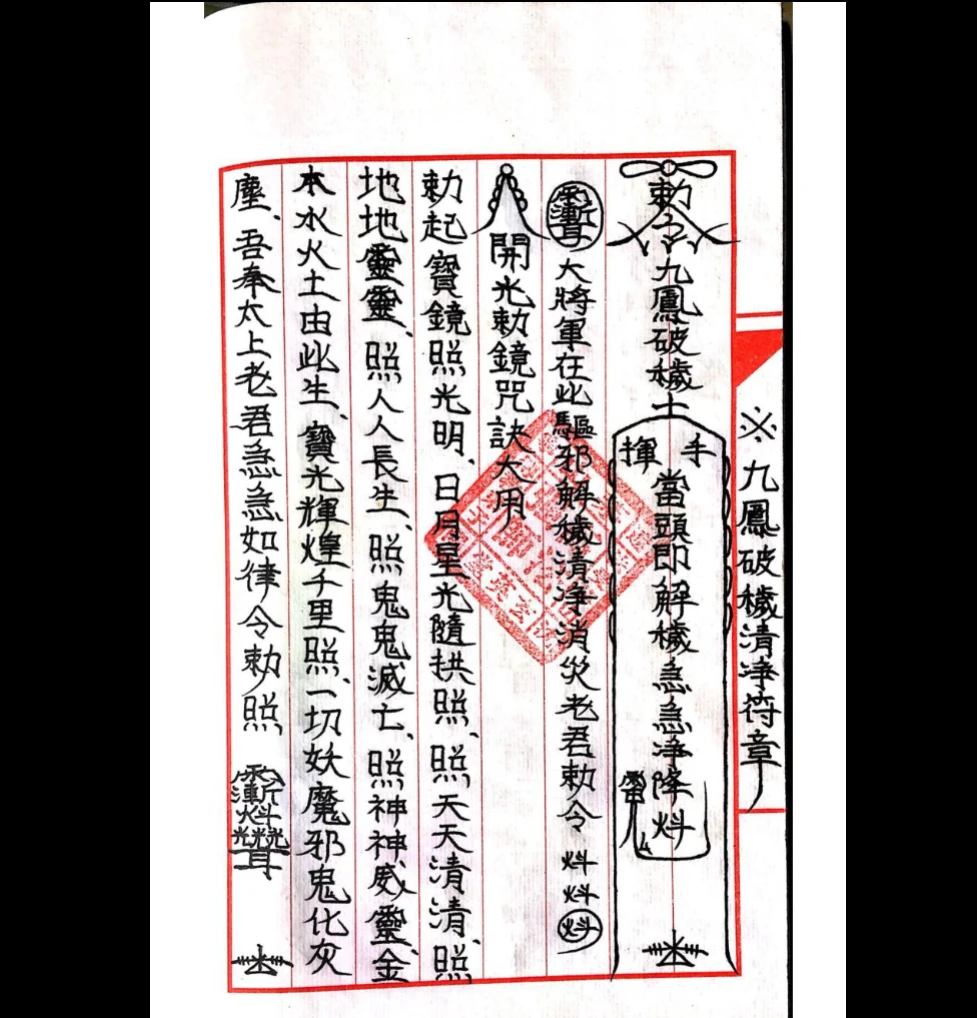 ※九鳳破穢清净符章
勅令九鳳破穢士
手揮
當頭即解穢急急淨降炓
大將軍在此驅邪解穢清净消災老君勅令炓炓炓
開光勅鏡咒訣大用
勅起寶鏡照光明、日月星光隨拱照、照天天清清、照
地地靈靈、照人人長生、照鬼鬼滅亡、照神神威靈、金
木水火土由此生、寶光輝煌千里照、一切妖魔邪鬼化灰
塵、吾奉太上老君急急如律令勅照